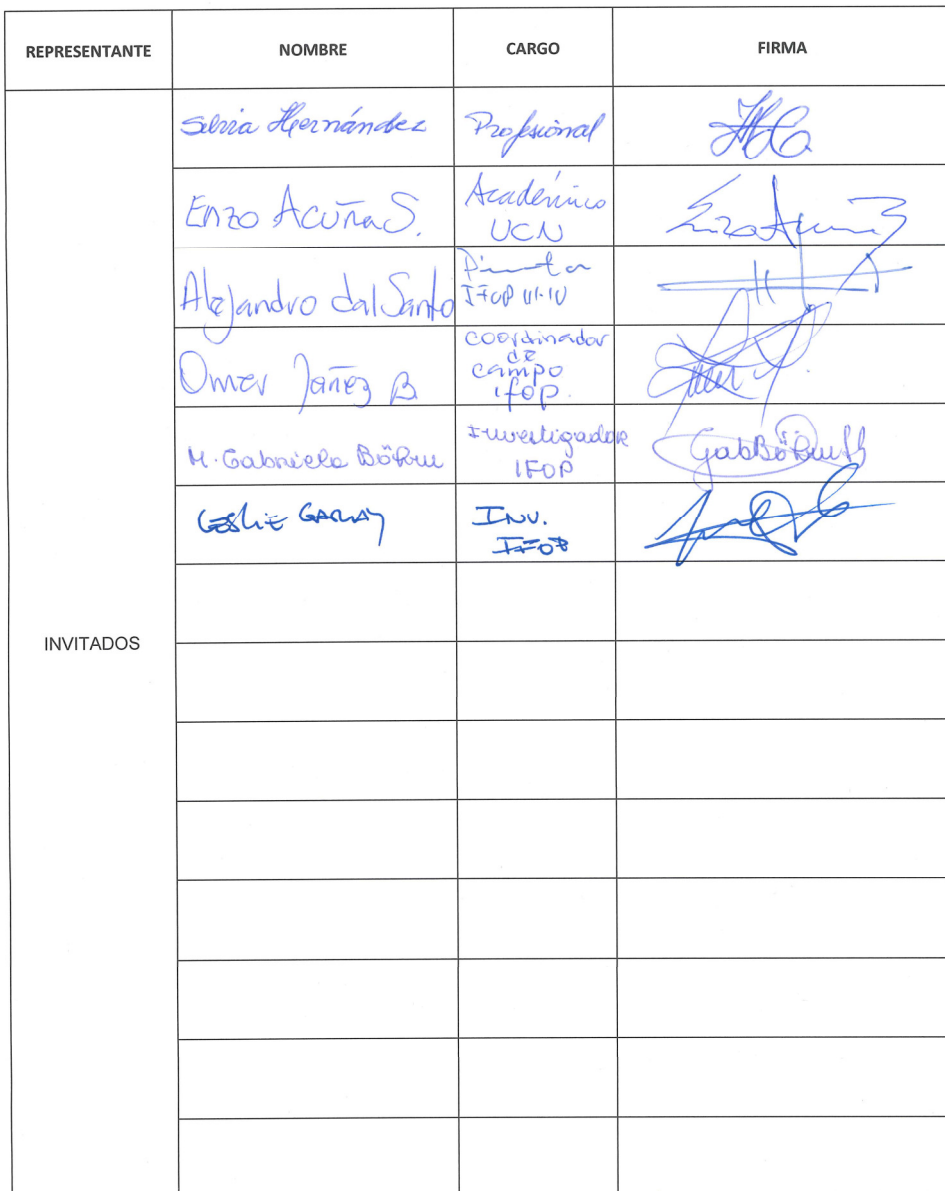 REPRESENTANTE NOMBRE CARGO FIRMA
INVITADOS
Silvia Hernández Profesional
Enzo Acuña S. Académico
UCN
Enzo Acuña S
Alejandro dal Santo
IFOP III-IV
Omar Yañez B. coordinador
de
campo
ifop.
M. Gabriela Böhm Investigador
IFOP
GabBöhm
LESLIE GARAY INV.
IFOP